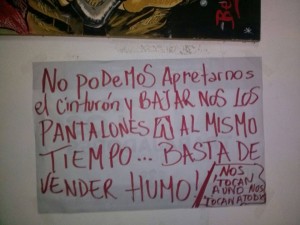 Re
NO PODEMOS APRETARNOS
el cinturón y BAJARNOS LOS
PANTALONES AL MISMO
TIEMPO... BASTA DE
VENDER HUMO!
NOS
TOCAN
A UNO NOS
TOCAN A TOD